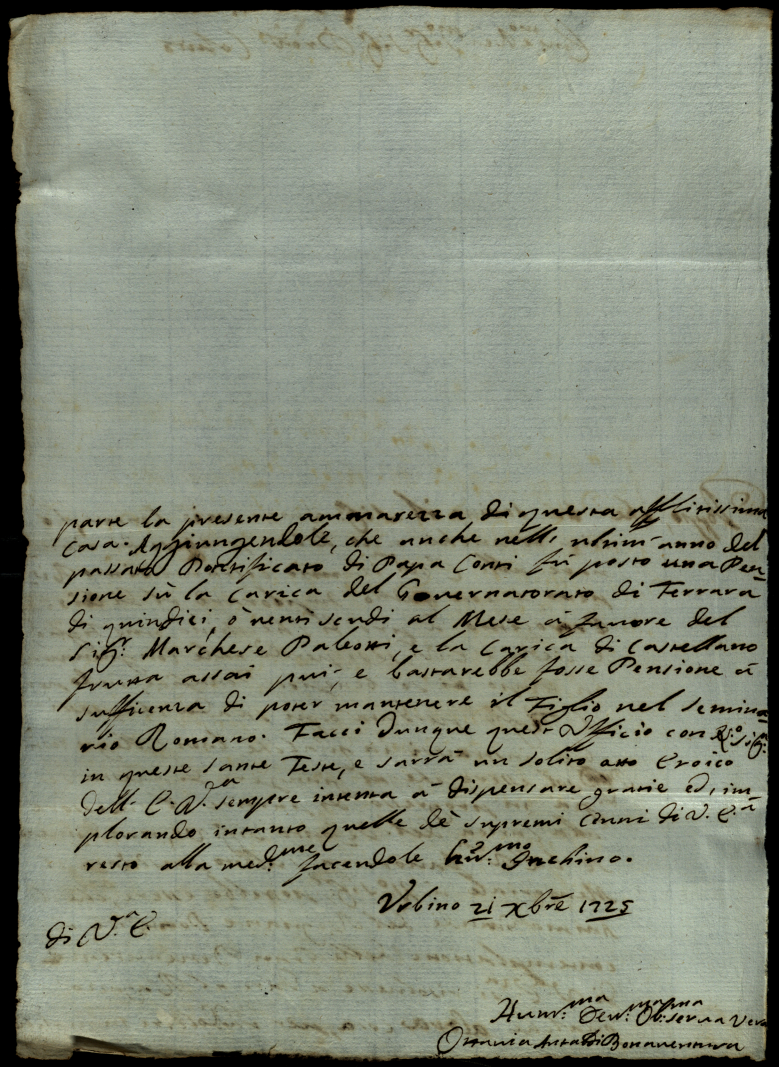 parte la presente ammarezza di questa afflitissima
Casa. Aggiungendole, che anche nell' ultim' anno del
passato Pontificato di Papa Conti fù posto una Pen=
sione sù la Carica del Governatorato di Ferrara
di quindici, ò venti scudi al Mese à favore del
Sig.r Marchese Paleotti, e la Carica di Castellano
frutta assai piu, e bastarebbe fosse Pensione à
sufficenza di poter mantenere il Figlio nel semina=
rio Romano. Facci dunque quest' Ufficio con N.o Sig.re
in queste sante Feste, e sarrà un solito atto Eroico
dell' E. V.ra sempre intenta à dispensare gratie ed, im
plorando intanto quelle de supremi Cenni di V. E.a
resto alla med.me facendole hu.mo Inchino.
Urbino 21 Xbre 1725
di V.a E.
Hum.ma Dev.ma Ob.ma serva Vera
Ottavia Antaldi Bonaventura